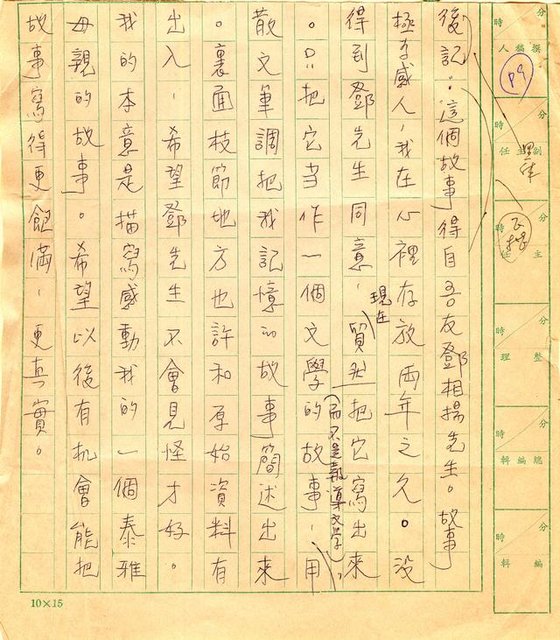 後記：這個故事得自吾友鄧相揚先生。故事
極其感人，我在心裡存放兩年之久。沒
得到鄧先生同意，現在貿然把它寫出來
。只把它当作一個文學的故事，（而不是報導文學）用
散文筆調把我記憶的故事簡述出來
。裏面枝節地方也許和原始資料有
出入，希望鄧先生不會見怪才好。
我的本意是描寫感動我的一個泰雅
母親的故事。希望以後有机會能把
故事寫得更飽滿，更真實。
撰稿人 時 分
P9
副主任 時 分
主任 時 分
整理 時 分
總編輯 時 分
編料 時 分
10×15